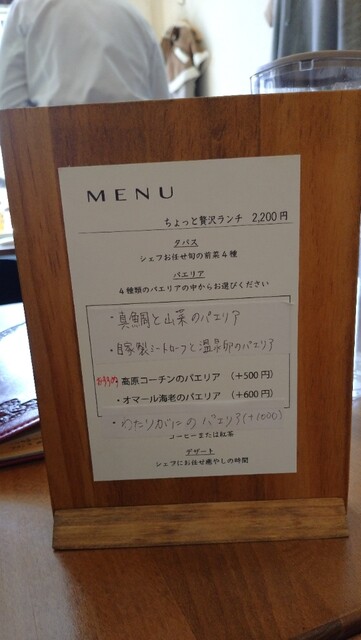 MENU
ちょっと贅沢ランチ 2,200円
タパス
シェフお任せ旬の前菜4種
パエリア
4種類のパエリアの中からお選びください
・真鯛と山菜のパエリア
・自家製ミートローフと温泉卵のパエリア
おすすめ 高原コーチンのパエリア (+500円)
・オマール海老のパエリア (+600円)
・わたりがにのパエリア(+1000)
コーヒーまたは紅茶
デザート
シェフにお任せ癒やしの時間